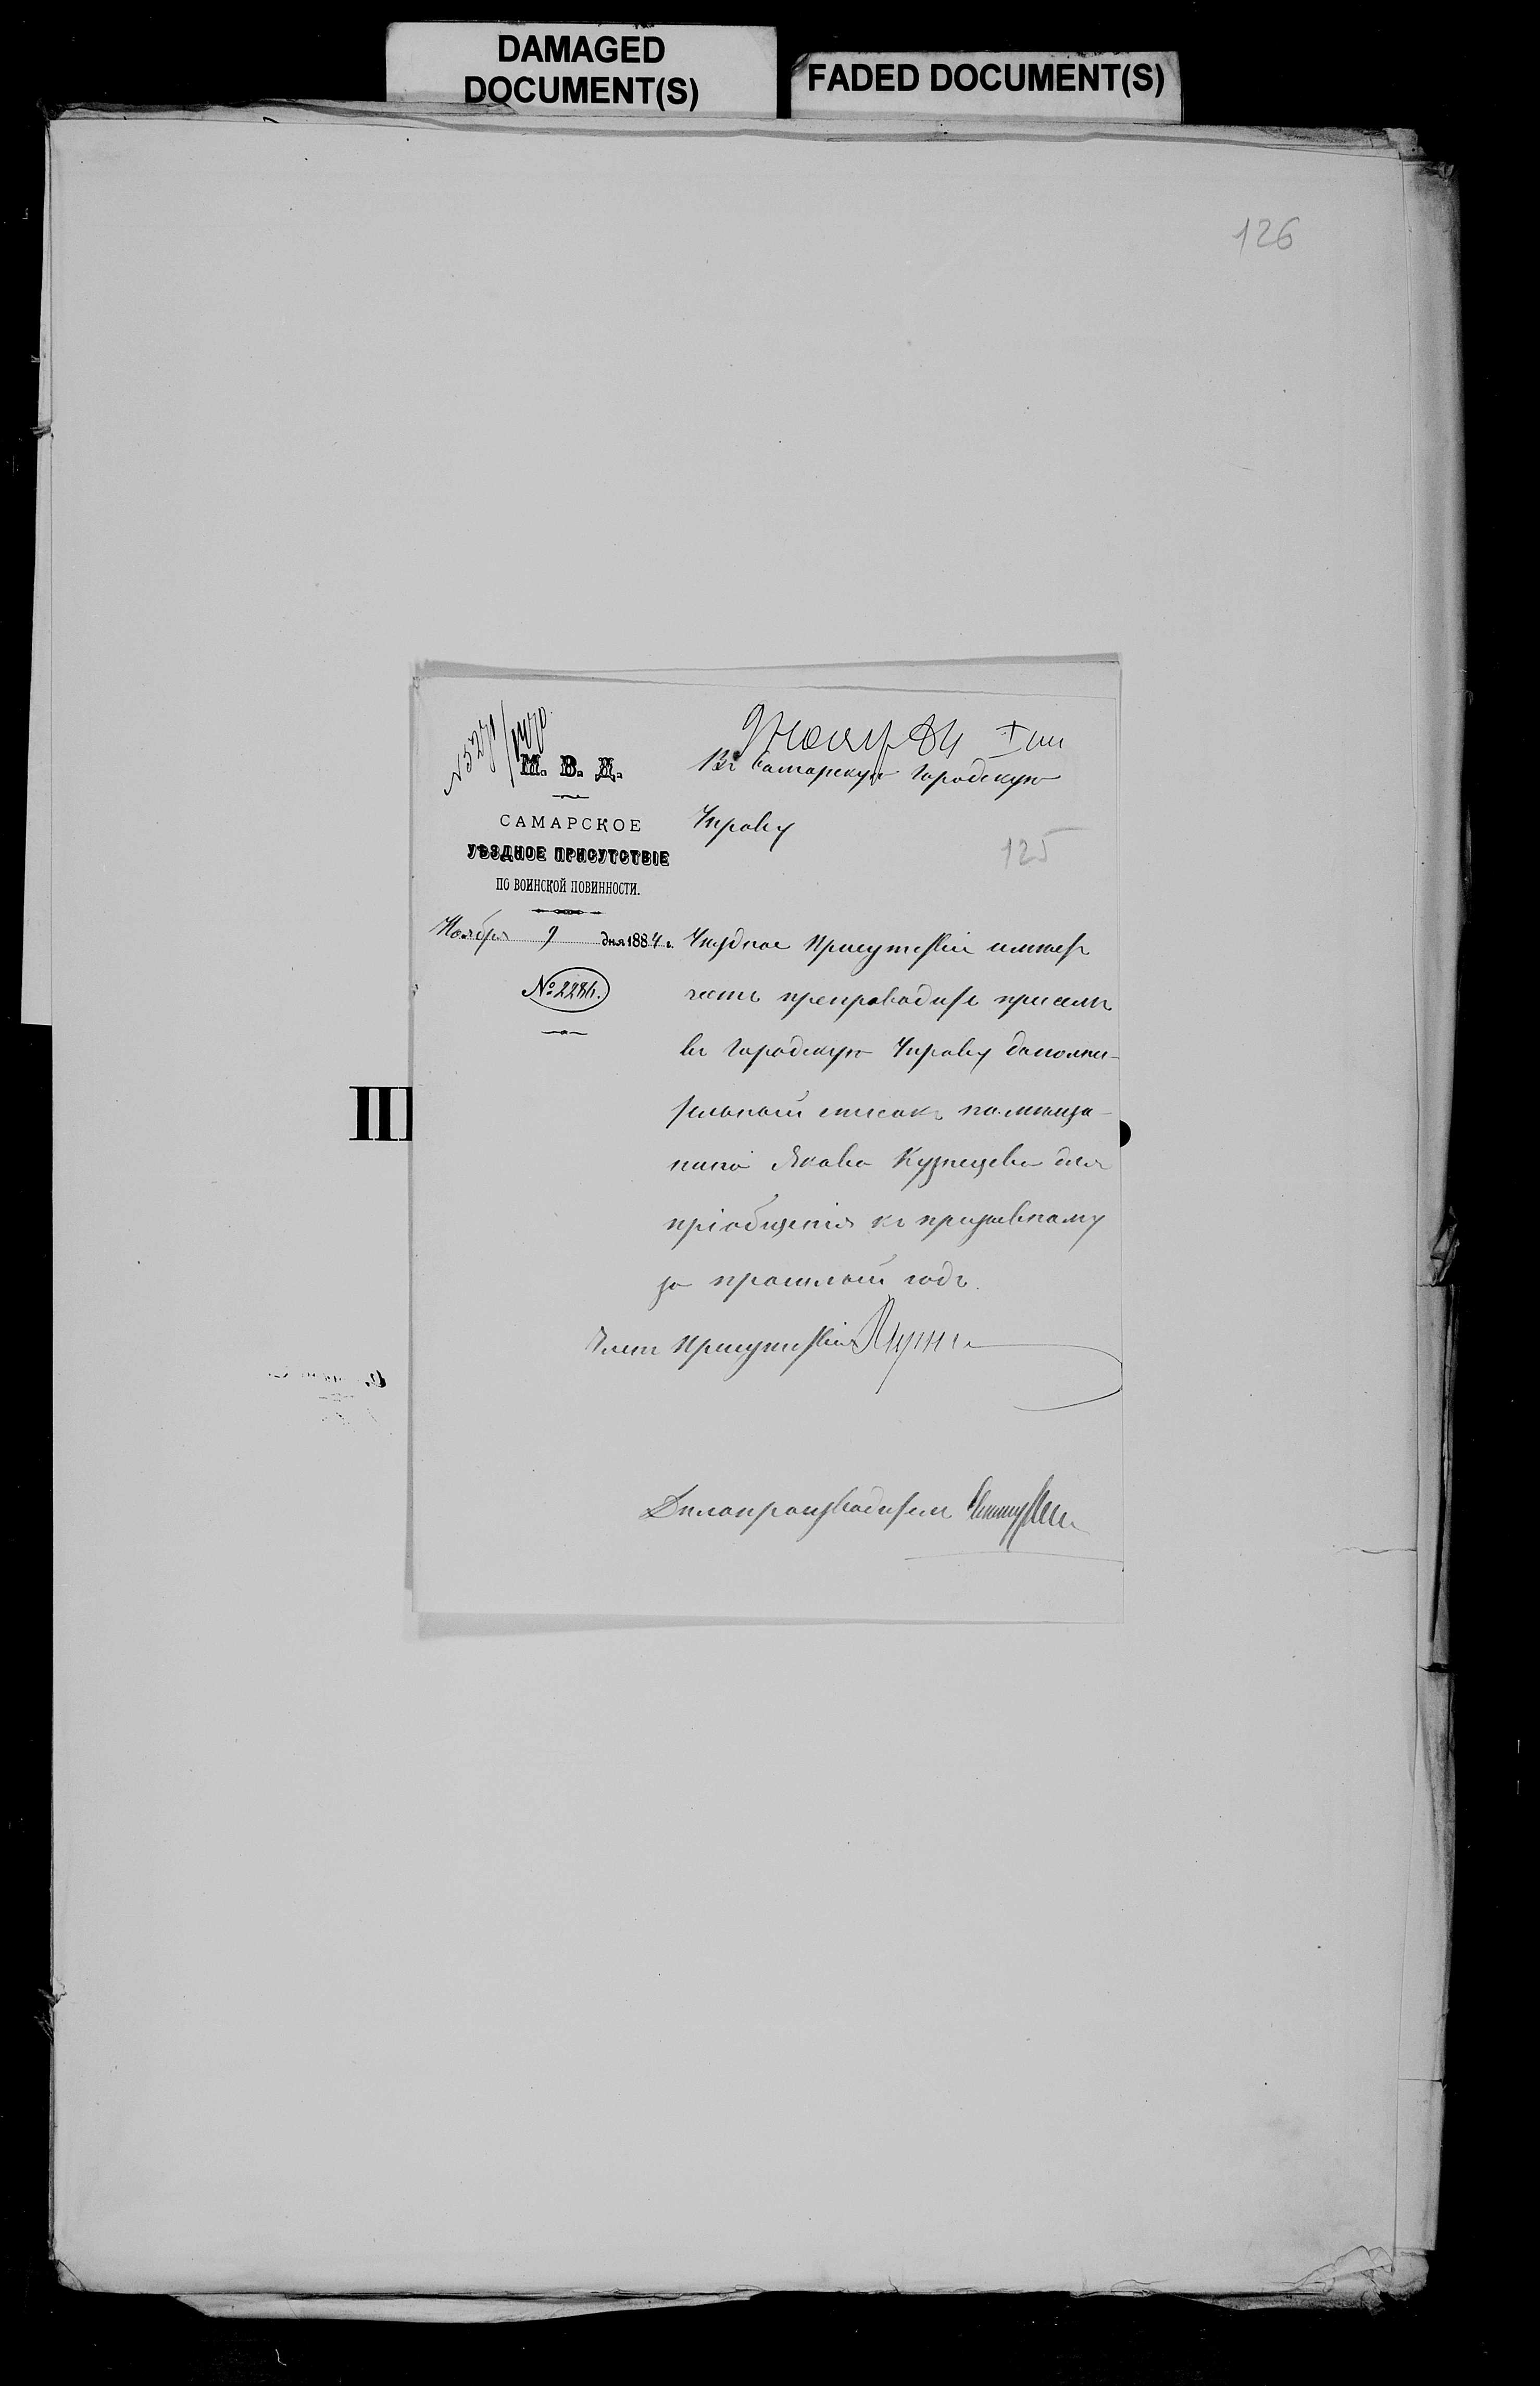 DAMAGED
DOCUMENT(S)
FADED DOCUMENT(S)
126
9 Ноября 84
М. В. Д.
САМАРСКОЕ
УѢЗДНОЕ ПРИСУТСТВІЕ
ПО ВОИНСКОЙ ПОВИННОСТИ.
Ноября 9 дня 1884 г.
№ 2284.
Въ Самарскую Городскую
Управу
125
Уѣздное Присутствіе имѣетъ
честь препроводить при семъ
въ Городскую Управу дополни-
тельный списокъ на мѣща-
нина Якова Кузнецова для
пріобщенія къ призывному
за прошлый годъ.
Членъ Присутствія
Дѣлопроизводитель
III